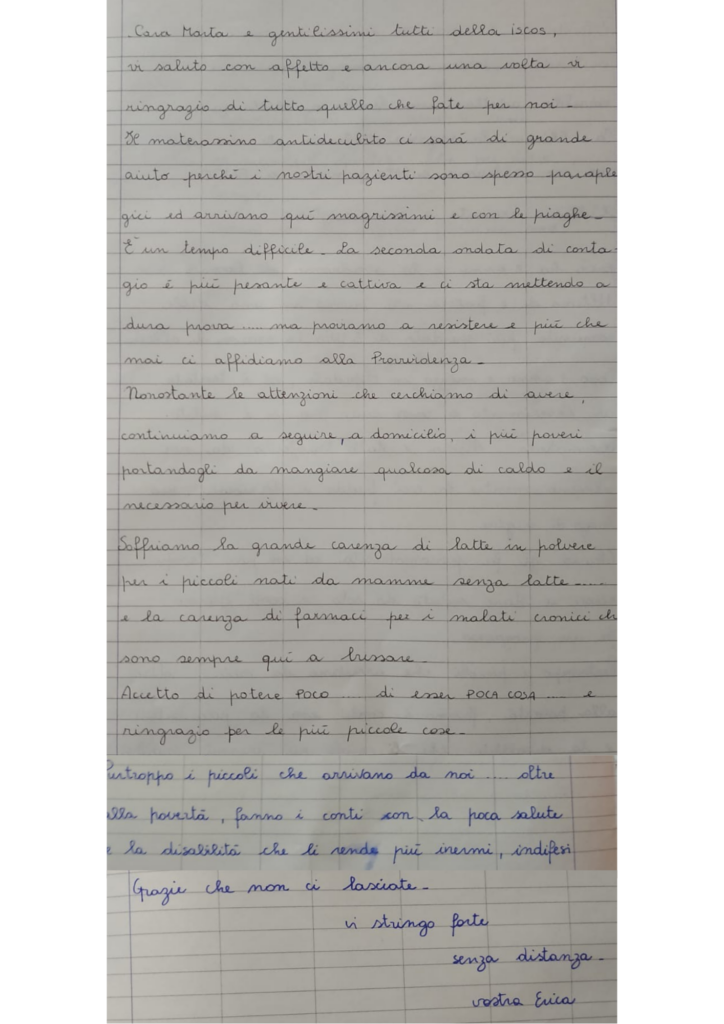 Cara Marta e gentilissimi tutti della iscos,
vi saluto con affetto e ancora una volta vi
ringrazio di tutto quello che fate per noi -
Il materassino antidecubito ci sará di grande
aiuto perché i nostri pazienti sono spesso paraple
gici ed arrivano quí magrissimi e con le piaghe -
É un tempo difficile - La seconda ondata di conta
gio é piú pesante e cattiva e ci sta mettendo a
dura prova ..... ma proviamo a resistere e piú che
mai ci affidiamo alla Provvidenza -
Nonostante le attenzioni che cerchiamo di avere,
continuiamo a seguire, a domicilio, i piú poveri
portandogli da mangiare qualcosa di caldo e il
necessario per vivere -
Soffriamo la grande carenza di latte in polvere
per i piccoli nati da mamme senza latte .....
e la carenza di farmaci per i malati cronici ch
sono sempre quí a bussare -
Accetto di potere POCO ..... di esser POCA COSA ..... e
ringrazio per le piú piccole cose -
Purtroppo i piccoli che arrivano da noi .... oltre
alla povertá, fanno i conti con la poca salute
e la disabilitá che li rende piú inermi, indifesi
Grazie che non ci lasciate -
vi stringo forte
senza distanza -
vostra Erica